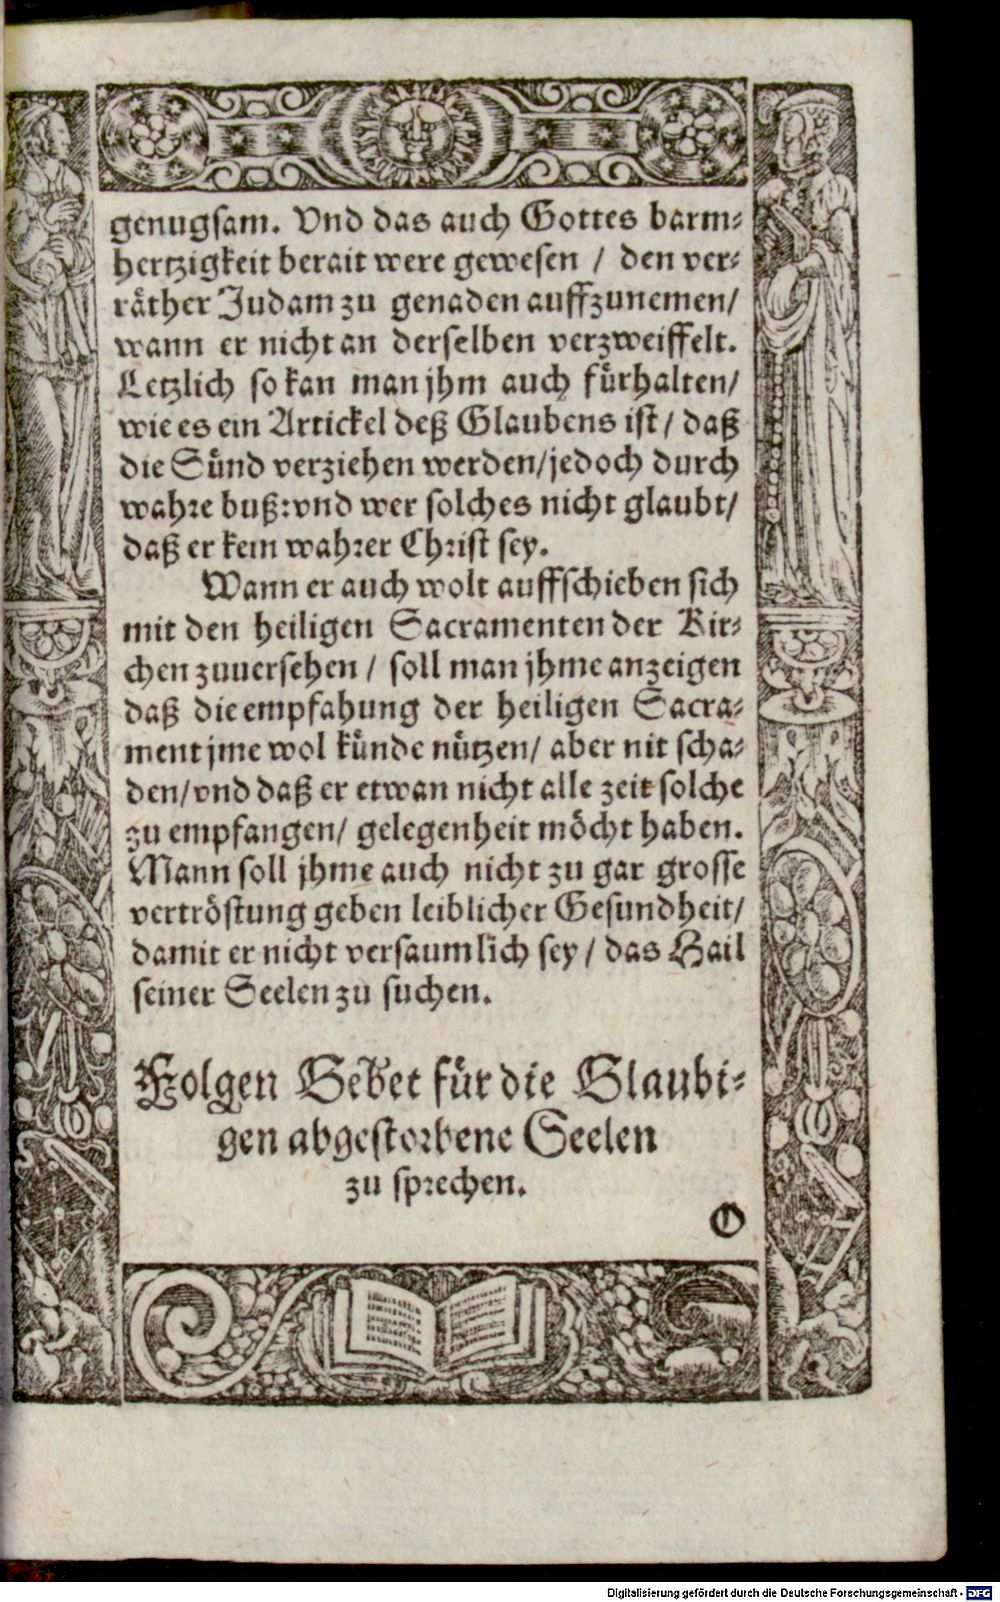 genugsam. Vnd das auch Gottes barm⸗
hertzigkeit berait were gewesen / den ver⸗
räther Judam zu genaden auffzunemen/
wann er nicht an derselben verzweiffelt.
Letzlich so kan man jhm auch fürhalten/
wie es ein Artickel deß Glaubens ist / daß
die Sünd verziehen werden/jedoch durch
wahre buß:vnd wer solches nicht glaubt/
daß er kein wahrer Christ sey.
Wann er auch wolt auffschieben sich
mit den heiligen Sacramenten der Kir⸗
chen zuuersehen / soll man jhme anzeigen
daß die empfahung der heiligen Sacra⸗
ment jme wol künde nützen/ aber nit scha⸗
den/vnd daß er etwan nicht alle zeit solche
zu empfangen/ gelegenheit möcht haben.
Mann soll jhme auch nicht zu gar grosse
vertröstung geben leiblicher Gesundheit/
damit er nicht versaumlich sey / das Hail
seiner Seelen zu suchen.
Folgen Gebet für die Glaubi⸗
gen abgestorbene Seelen
zu sprechen.
O
Digitalisierung gefördert durch die Deutsche Forschungsgemeinschaft - DFG